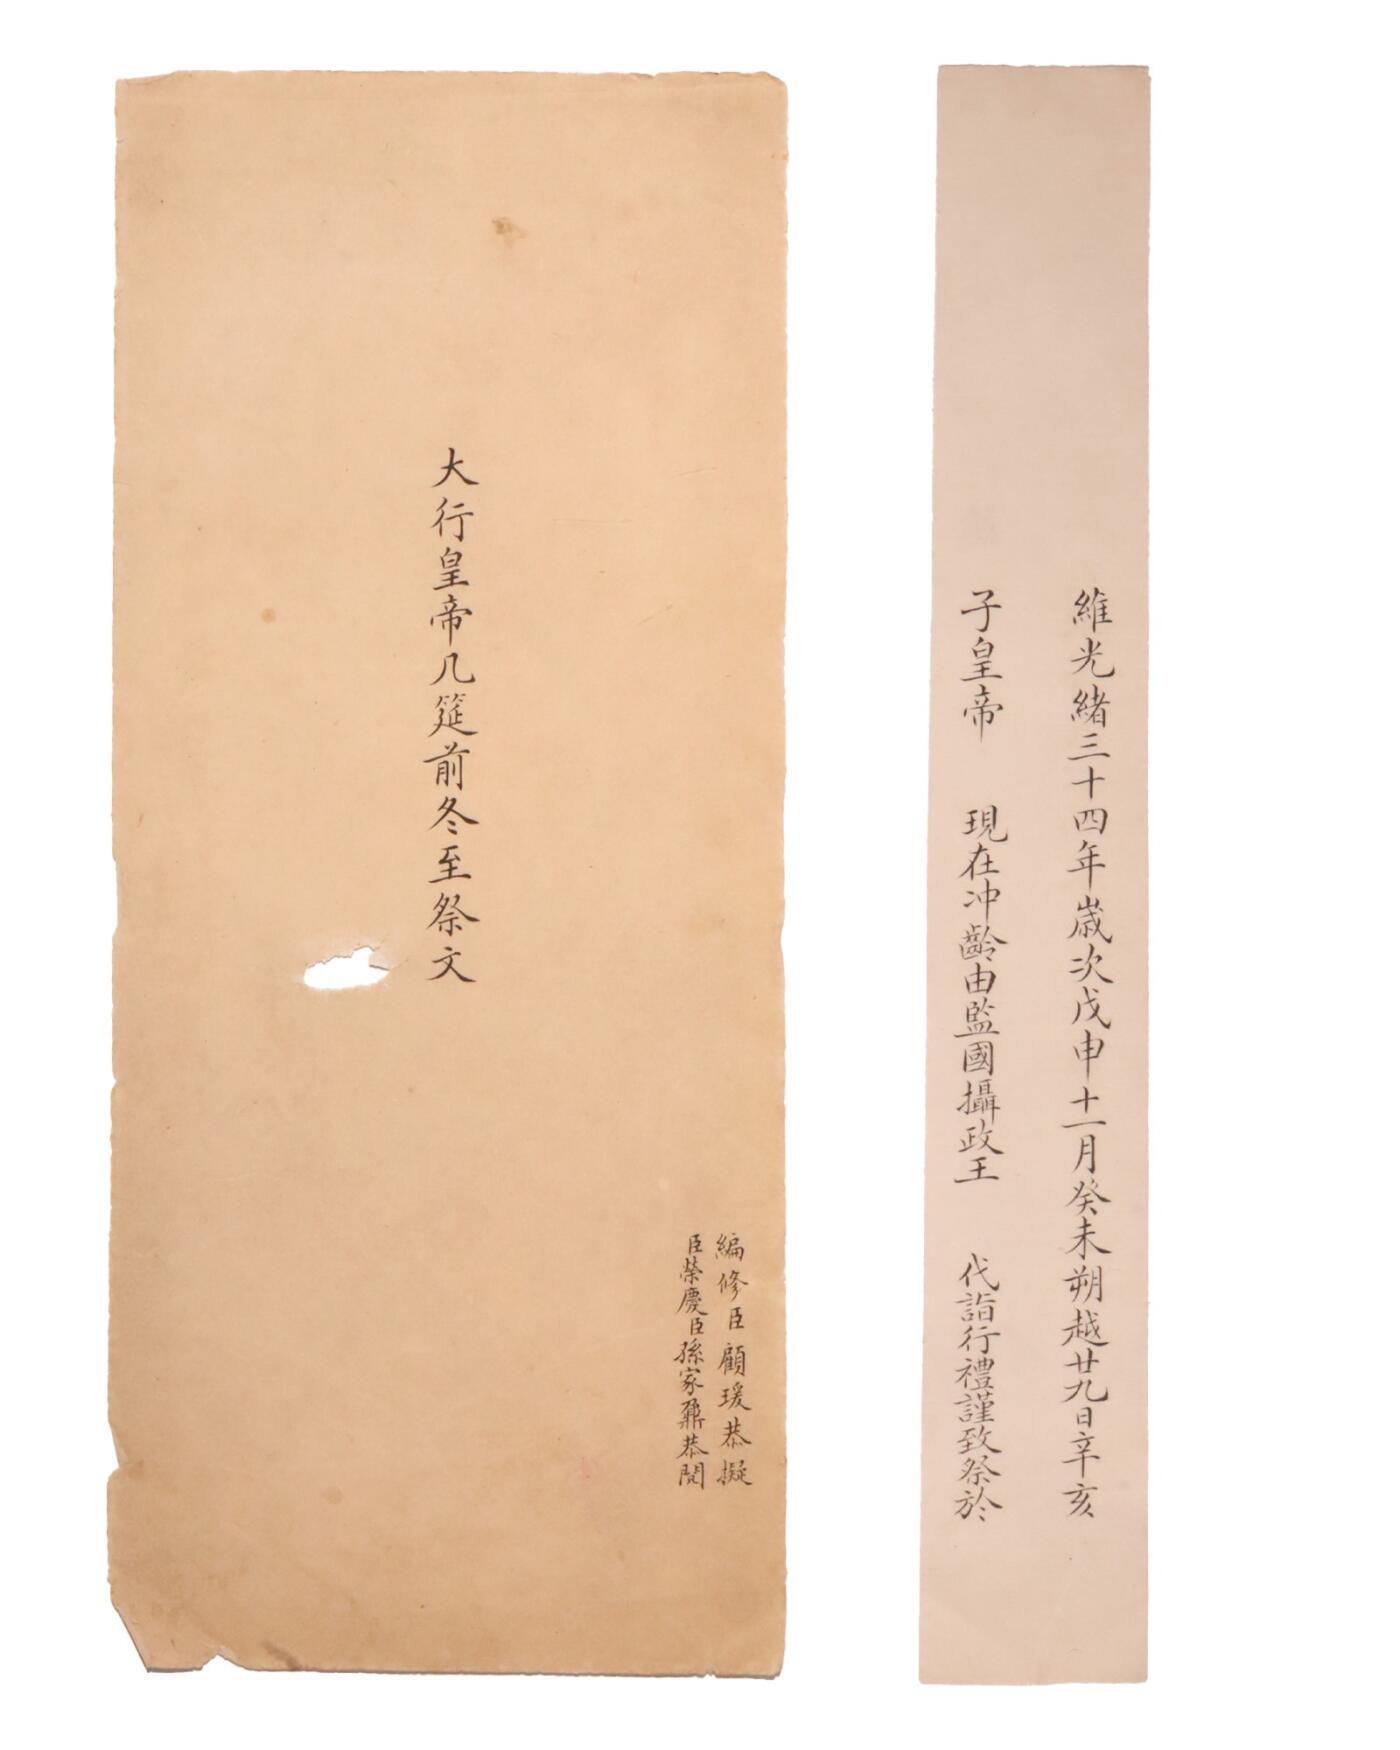 維光緒三十四年歲次戊申十一月癸未朔越廿九日辛亥
子皇帝 現在冲齡由監國攝政王 代詣行禮謹致祭於
大行皇帝几筵前冬至祭文
編修臣顧瑗恭擬
臣榮慶臣孫家鼐恭閱